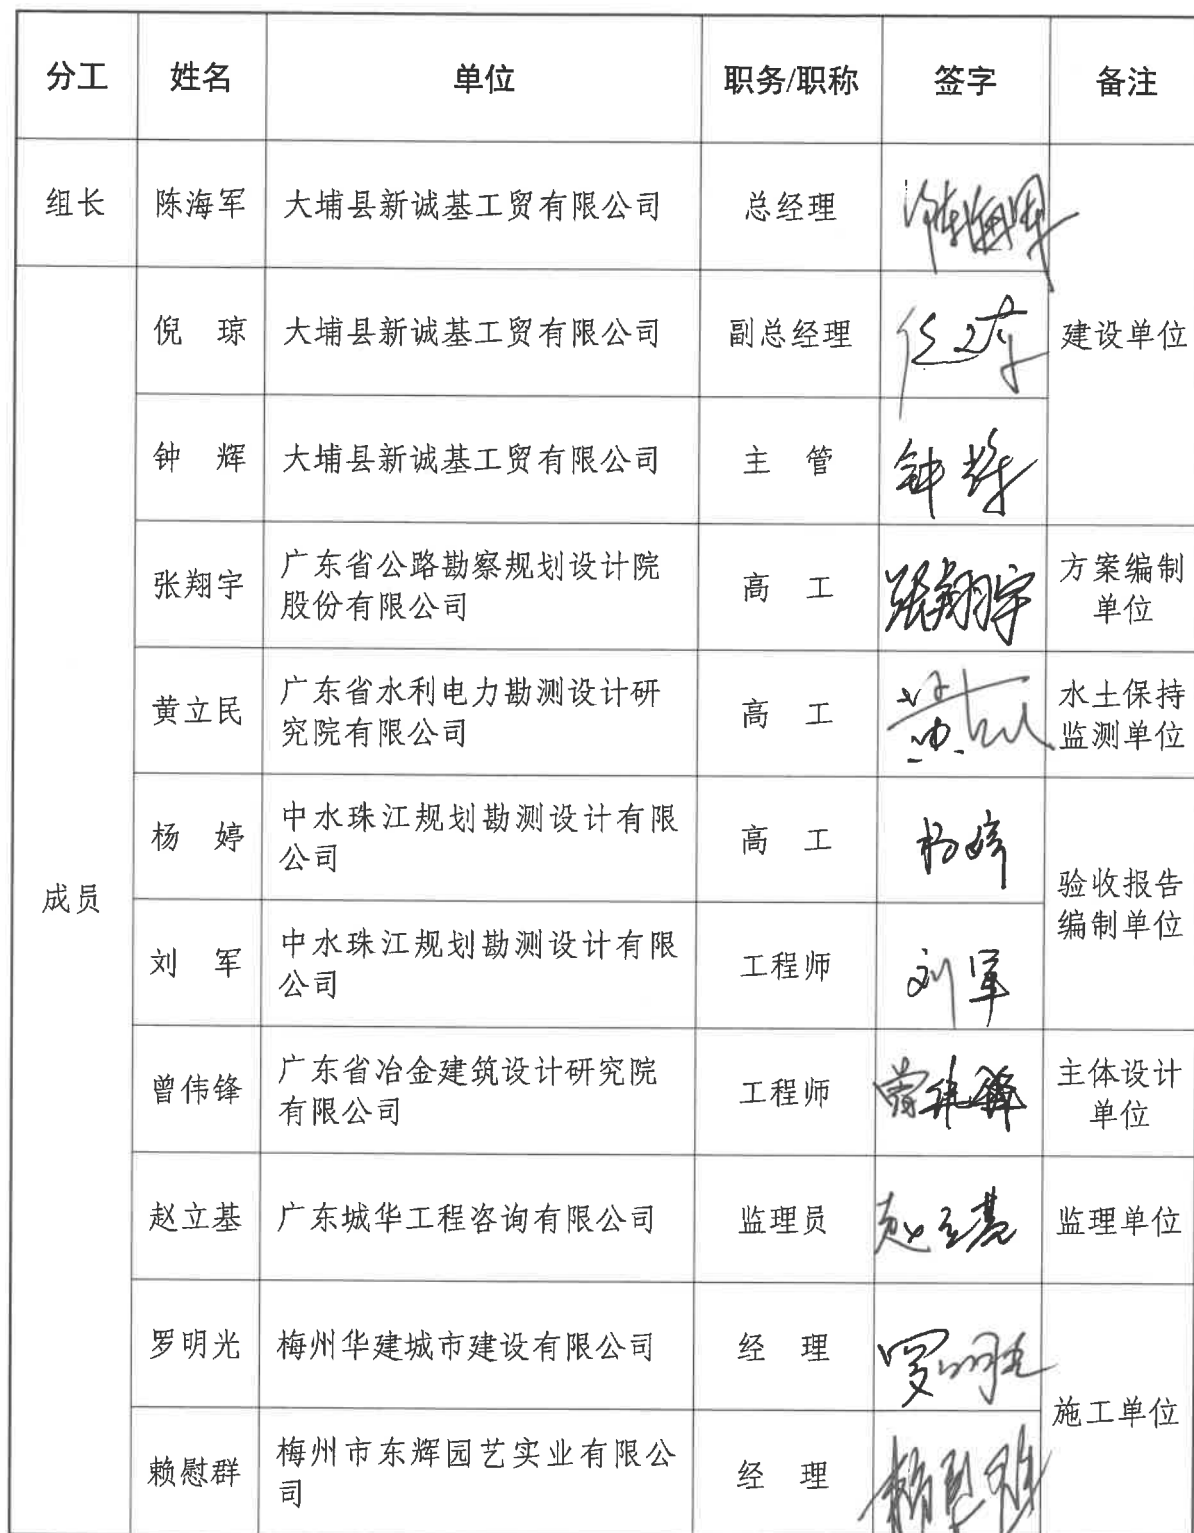 分工 姓名 单位 职务/职称 签字 备注
组长 陈海军 大埔县新诚基工贸有限公司 总经理 陈海军
倪 琼 大埔县新诚基工贸有限公司 副总经理 建设单位
钟 辉 大埔县新诚基工贸有限公司 主 管 钟辉
张翔宇 广东省公路勘察规划设计院
股份有限公司 高 工 张翔宇 方案编制
单位
黄立民 广东省水利电力勘测设计研
究院有限公司 高 工 水土保持
监测单位
成员
杨 婷 中水珠江规划勘测设计有限
公司 高 工 杨婷 验收报告
编制单位
刘 军 中水珠江规划勘测设计有限
公司 工程师 刘军
曾伟锋 广东省冶金建筑设计研究院
有限公司 工程师 曾伟锋 主体设计
单位
赵立基 广东城华工程咨询有限公司 监理员 赵立基 监理单位
罗明光 梅州华建城市建设有限公司 经 理 罗明光 施工单位
赖慰群 梅州市东辉园艺实业有限公
司 经 理 赖慰群